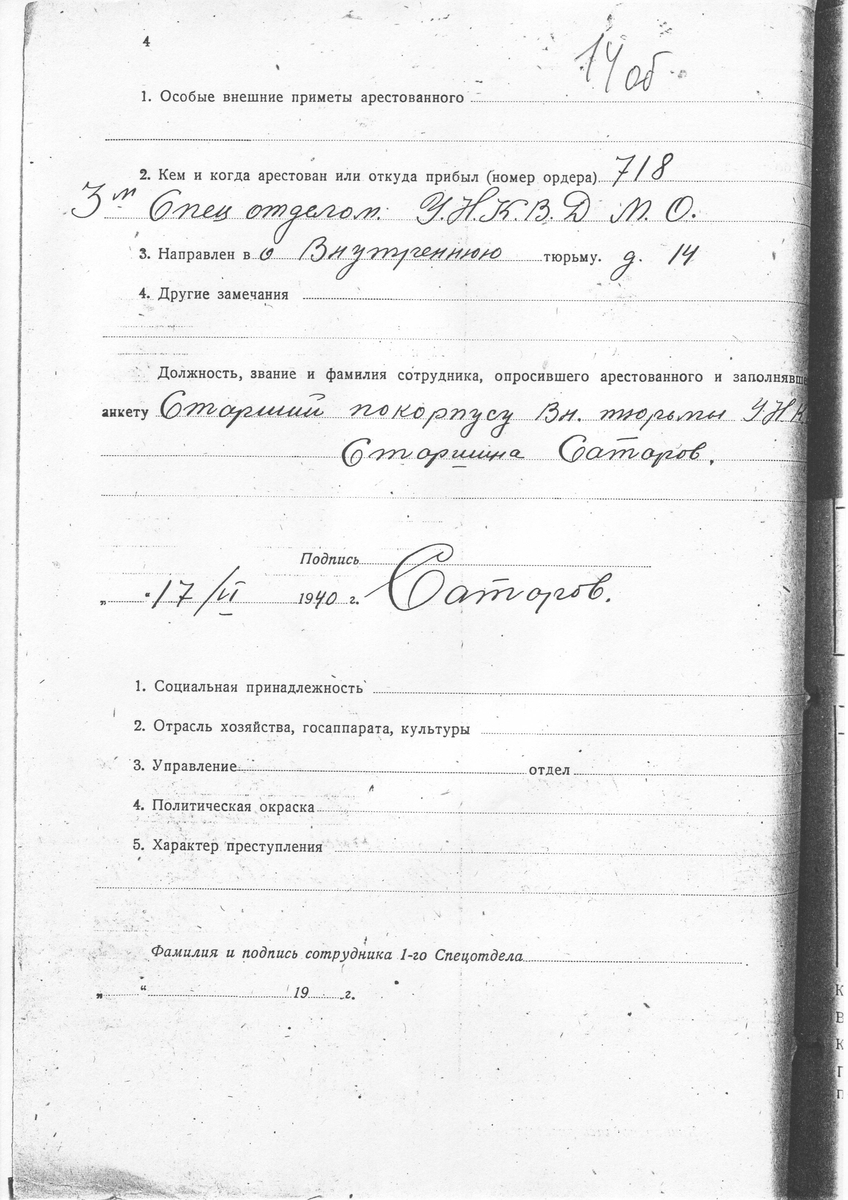 4
14 об
1. Особые внешние приметы арестованного
2. Кем и когда арестован или откуда прибыл (номер ордера) 718
3м Спец отделом У.Н.К.В.Д М.О.
3. Направлен в о Внутреннюю тюрьму. д. 14
4. Другие замечания
Должность, звание и фамилия сотрудника, опросившего арестованного и заполнявше
анкету Старший по корпусу Вн. тюрьмы УНК
Старшина Саторов.
Подпись
„ “ 17/VI 1940 г. Саторов.
1. Социальная принадлежность
2. Отрасль хозяйства, госаппарата, культуры
3. Управление отдел
4. Политическая окраска
5. Характер преступления
Фамилия и подпись сотрудника 1-го Спецотдела
„ “ 19 г.
К
В
К
Г
П